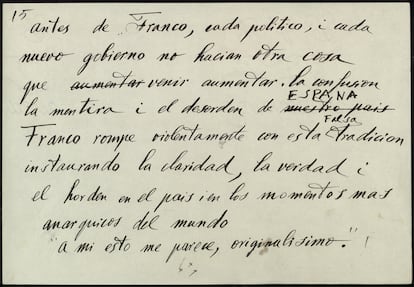 15
antes de Franco, cada politico, i cada
nuevo gobierno no hacian otra cosa
que aumentar venir aumentar, la confusion
ESPAÑA
la mentira i el desorden de nuestro pais
FALSA
Franco rompe violentamente con esta tradicion
instaurando la claridad, la verdad i
el horden en el pais i en los momentos mas
anarquicos del mundo
"a mi esto me parece, originalisimo". !